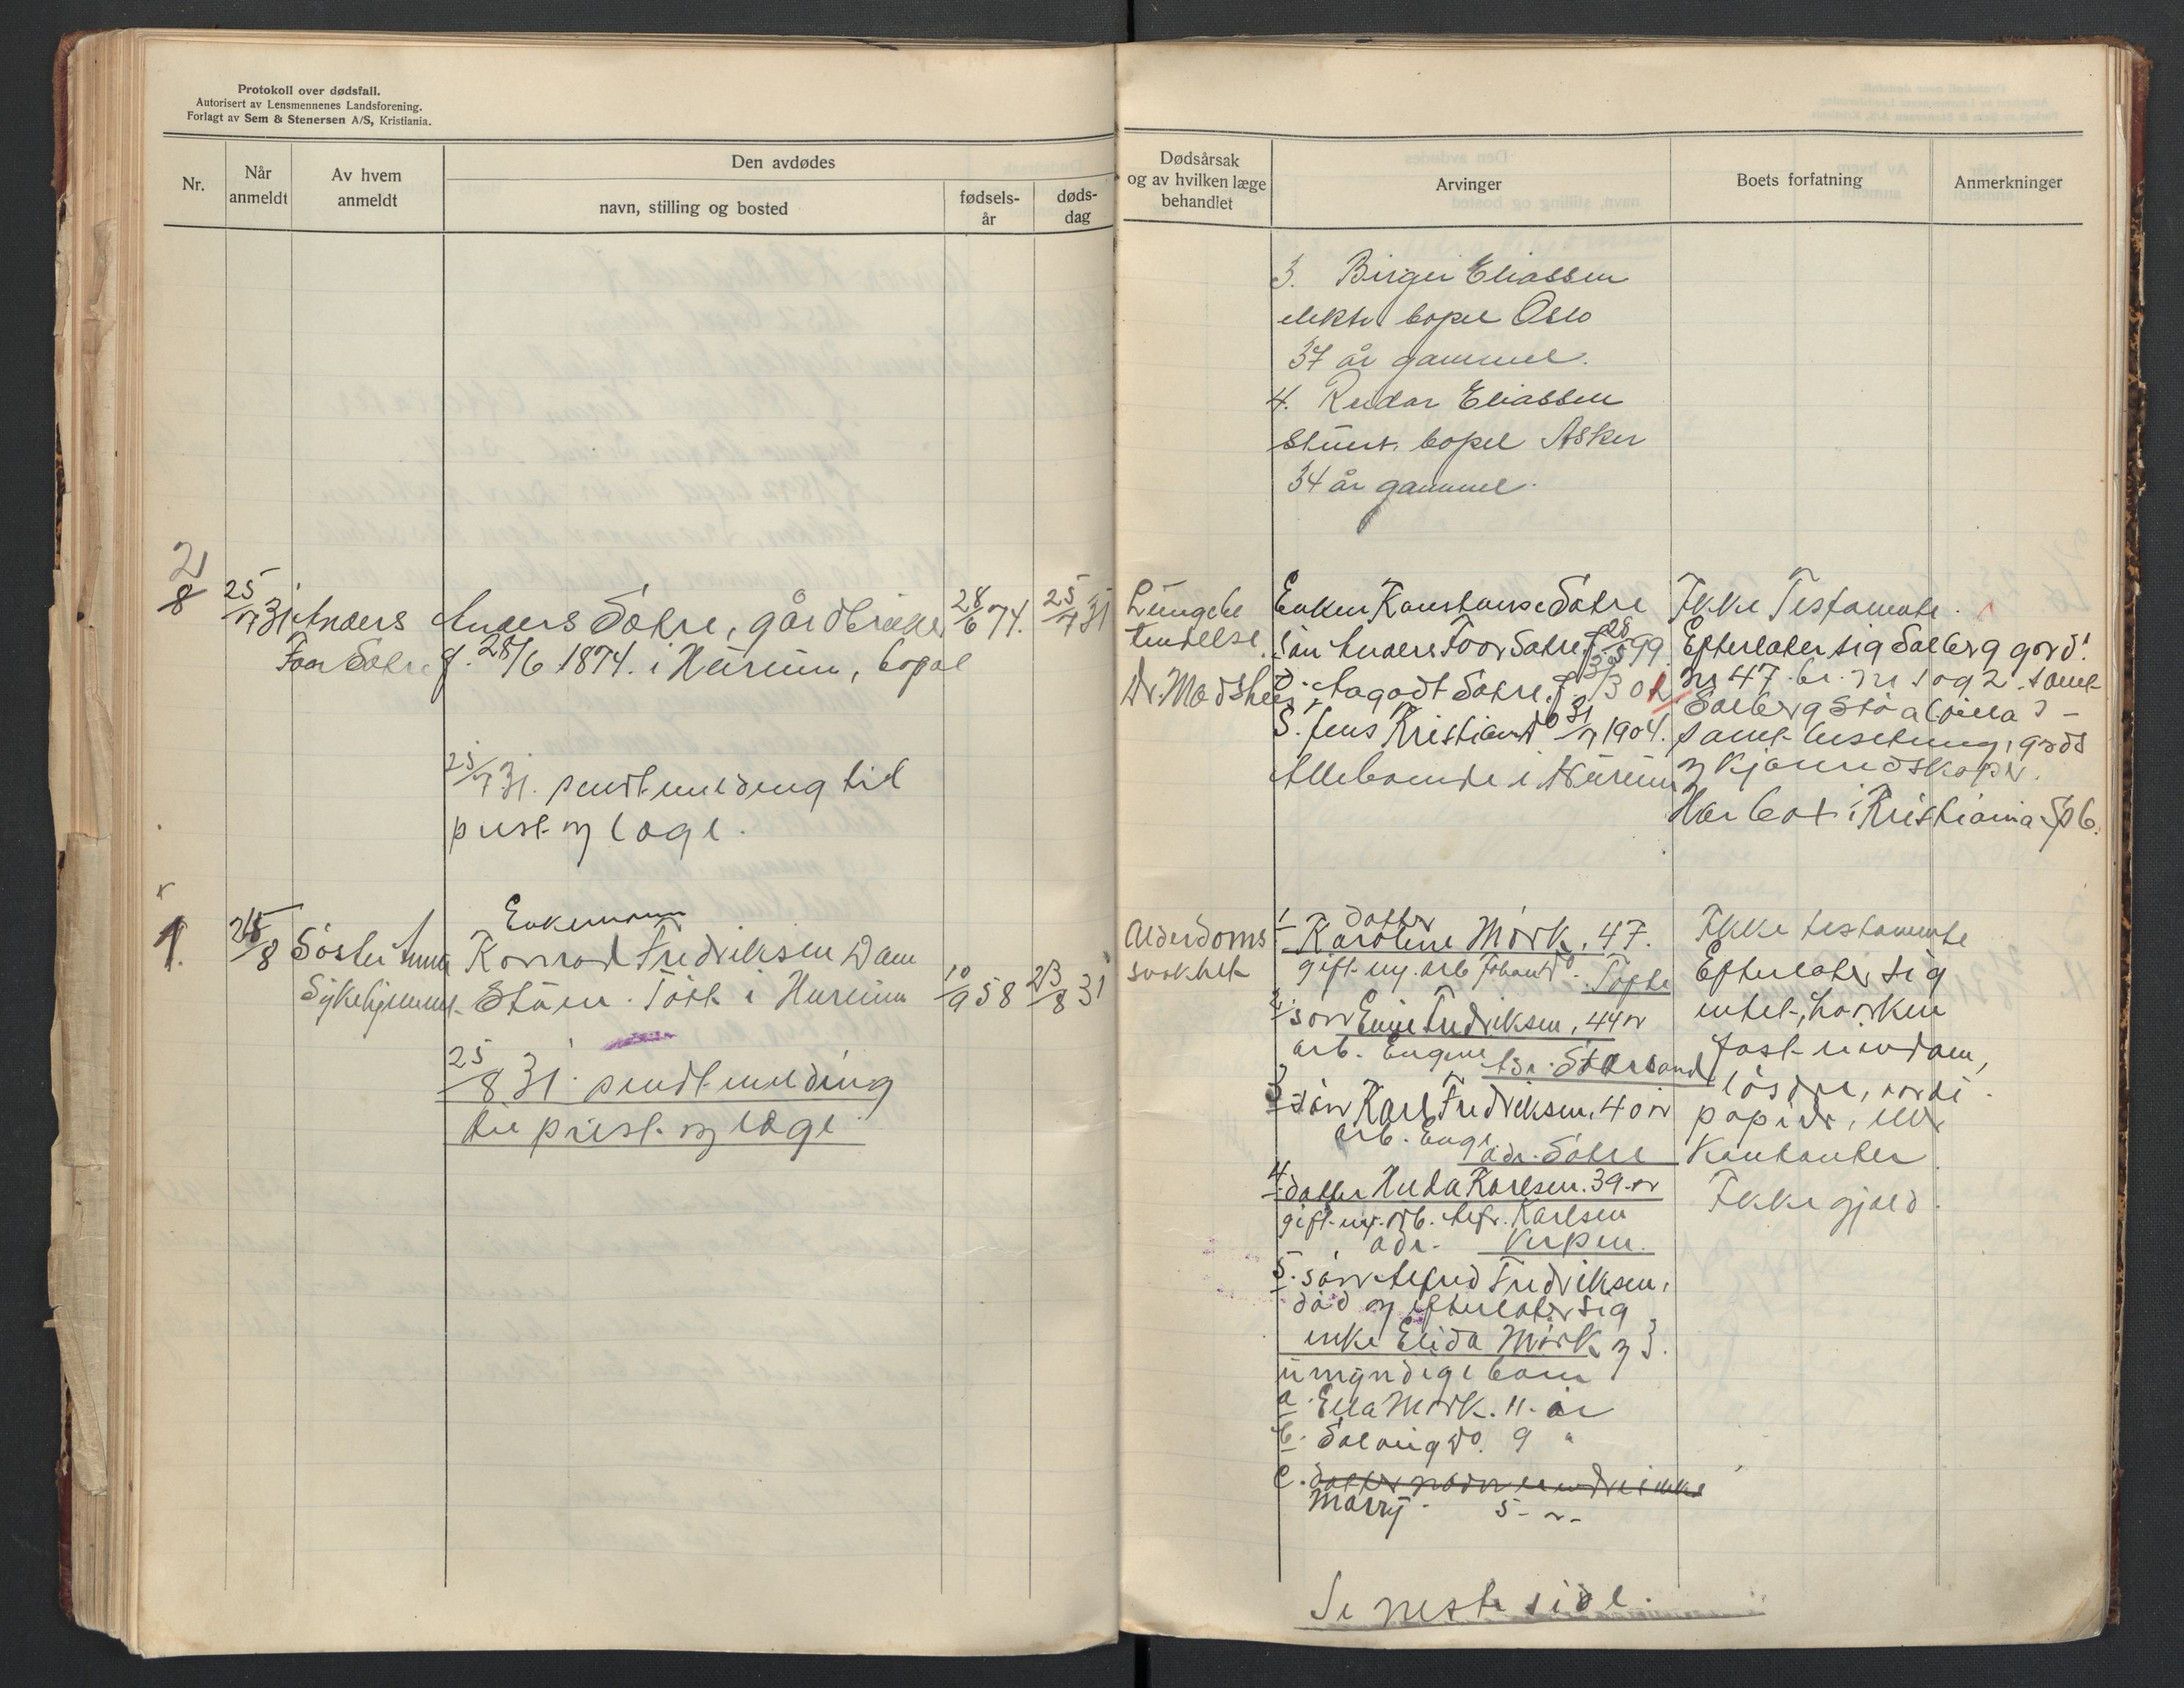 Protokoll over dødsfall.
Autorisert av Lensmennenes Landsforening.
Forlagt av Sem & Stenersen A/S, Kristiania.
Nr.
Når
anmeldt
Av hvem
anmeldt
Den avdødes
navn, stilling og bosted
fødsels-
år
døds-
dag
2/8
25/7 31
Anders
Toor Sætre
Anders Sætre, gårdbruker
f. 28/6 1874. i Hurum, bopæl
28/6 74.
25/7 31
25/7 31. sendt melding til
prest og læge.
1.
25/8
Søster Anna
Sykehjemmet
Enkemann
Konrad Fredriksen Dam
Støen. Tofte i Hurum
10/9 58
23/8 31
25/8 31. sendt melding
til prest og læge
Dødsårsak
og av hvilken læge
behandlet
Arvinger
Boets forfatning
Anmerkninger
3. Birger Eliassen
elektr bopel Oslo
37 år gammel.
4. Reidar Eliassen
bopel Asker
34 år gammel.
Lungebe
tendelse
Dr. Madshus
Enken Konstanse Sætre
søn Anders Toor Sætre f. 28/5 99
d. Aagodt Sætre. f.
S. Jens Kristian do 31/7 1904.
Alle boende i Hurum
Ikke Testamente.
Efterlater sig Solberg gård
nr 47. br. nr 1 og 2. samt
Solberg Stoa (villa)
samt besetning, gårds
og kjøreredskaper.
Har box i Kristiania Spb.
Alderdoms
svakhet
1 datter
Karoline Mørk. 47.
gift m. arb Johan do. Tofte
2 søn Einar Fredriksen, 44 år
arb. Engene Adr. Storsand
3 søn Karl Fredriksen, 40 år
arb. Enge adr. Sætre
4. datter Hulda Karlsen. 39 år
gift m. arb. Alfr. Karlsen
adr. Verpen.
5. søn Alfred Fredriksen,
død og efterlater sig
enke Elida Mørk og 3.
umyndige barn
a. Ella Mørk. 11. år
b. Solveig do. 9 "
c. datter navn
Marry. 5 - " -
Ikke testamente
Efterlater sig
intet, hverken
fast eiendom,
løsøre, verdi
papirer, eller
Kontanter.
Ikke gjæld.
Se neste side.